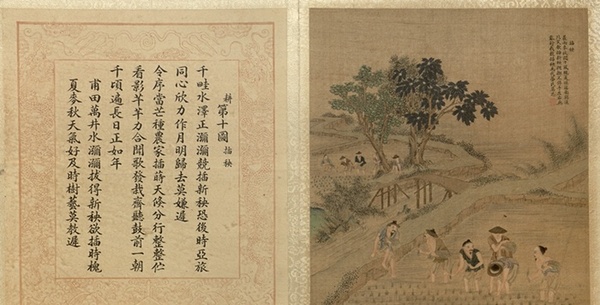 耕 第十圖 插秧
千畦水澤正瀰瀰競插新秧恐後時亞旅
同心欣力作月明歸去莫嫌遲
令序當芒種農家插蒔天倏分行整整佇
看影芊芊力合聞歌發栽齊聽鼓前一朝
千頃遍長日正如年
甫田萬井水瀰瀰拔得新秧欲插時槐
夏麥秋天氣好及時樹藝莫教遲
插秧